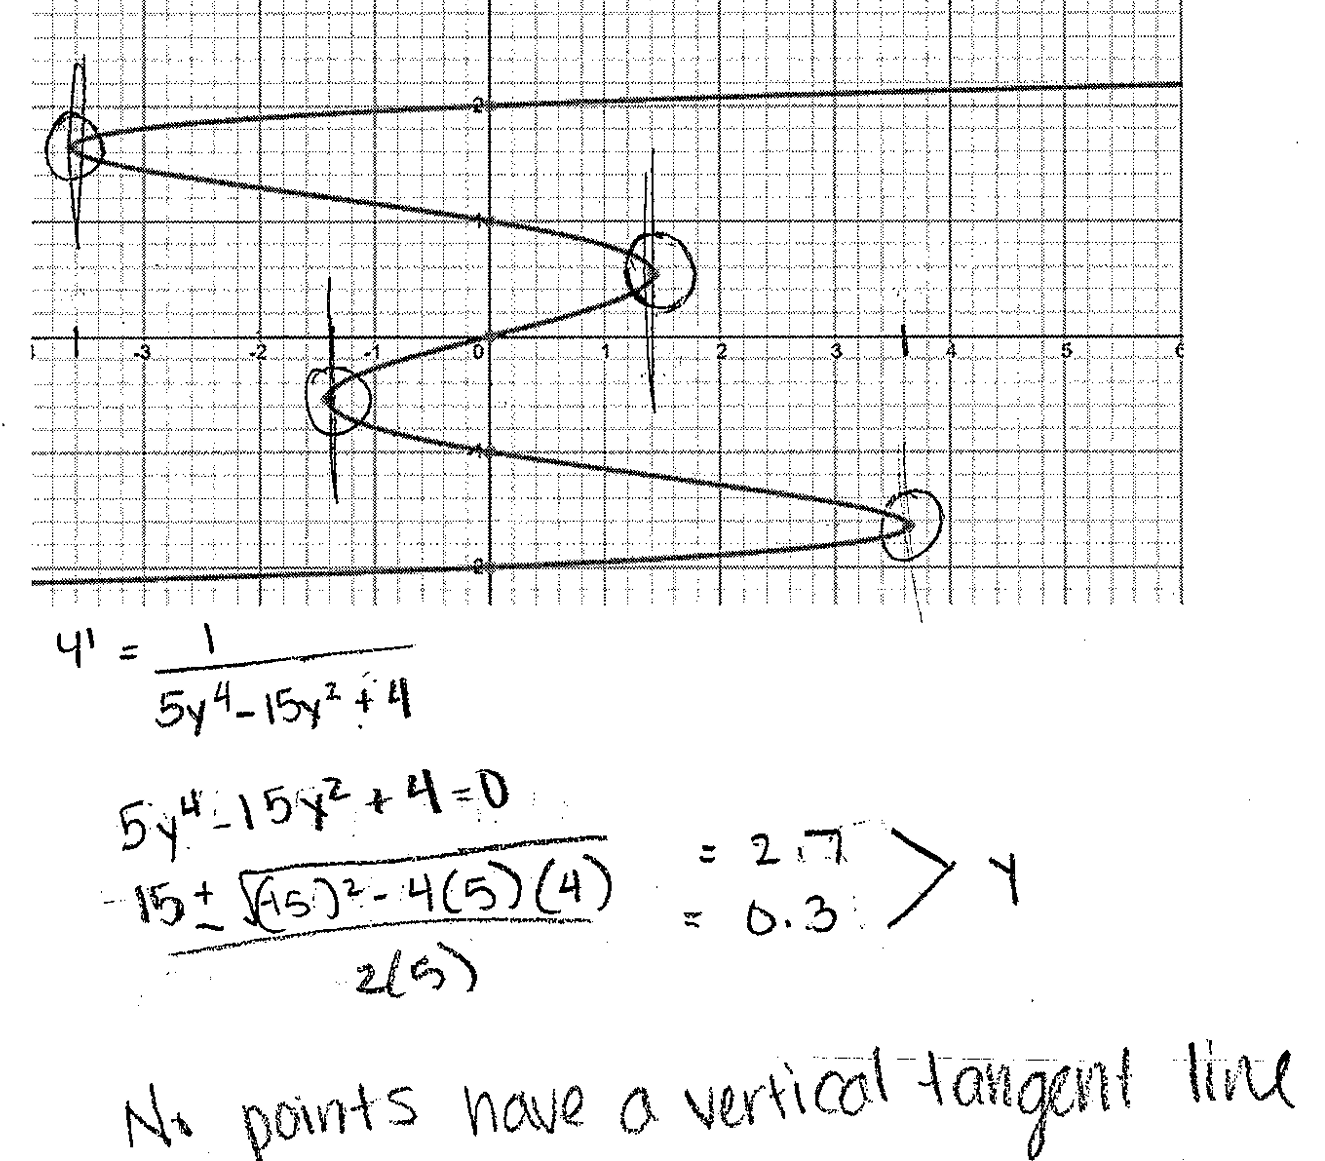 2
1
-3 -2 -1 0 1 2 3 4 5 6
-1
-2
y' = 1 / (5y⁴-15y²+4)
5y⁴-15y²+4=0
15±√((-15)²-4(5)(4)) / 2(5) = 2.7 = 0.3 > y
No points have a vertical tangent line